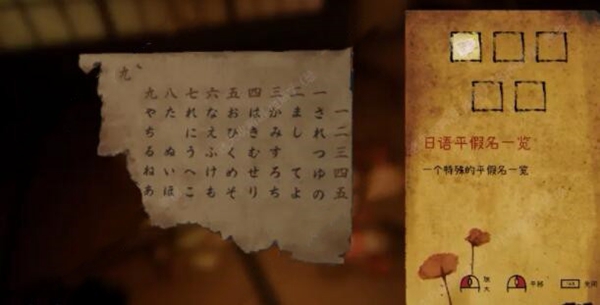 九
一二三四五
一されつゆの
二まし てよ
三かみすろち
四はきむせり
五おひくめそ
六なえふけも
七れにうへこ
八た ぬいほ
九やちるねあ
日语平假名一览
一个特殊的平假名一览
放大
平移
关闭